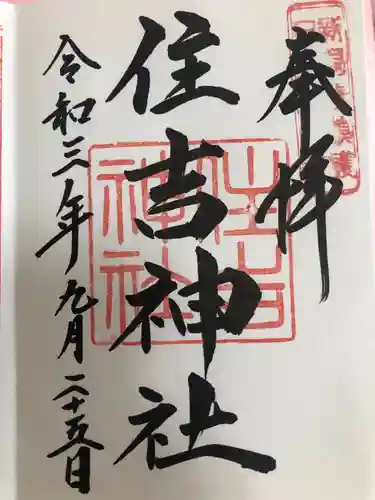 奉拝
住吉神社
令和三年九月二十五日
住吉
神社